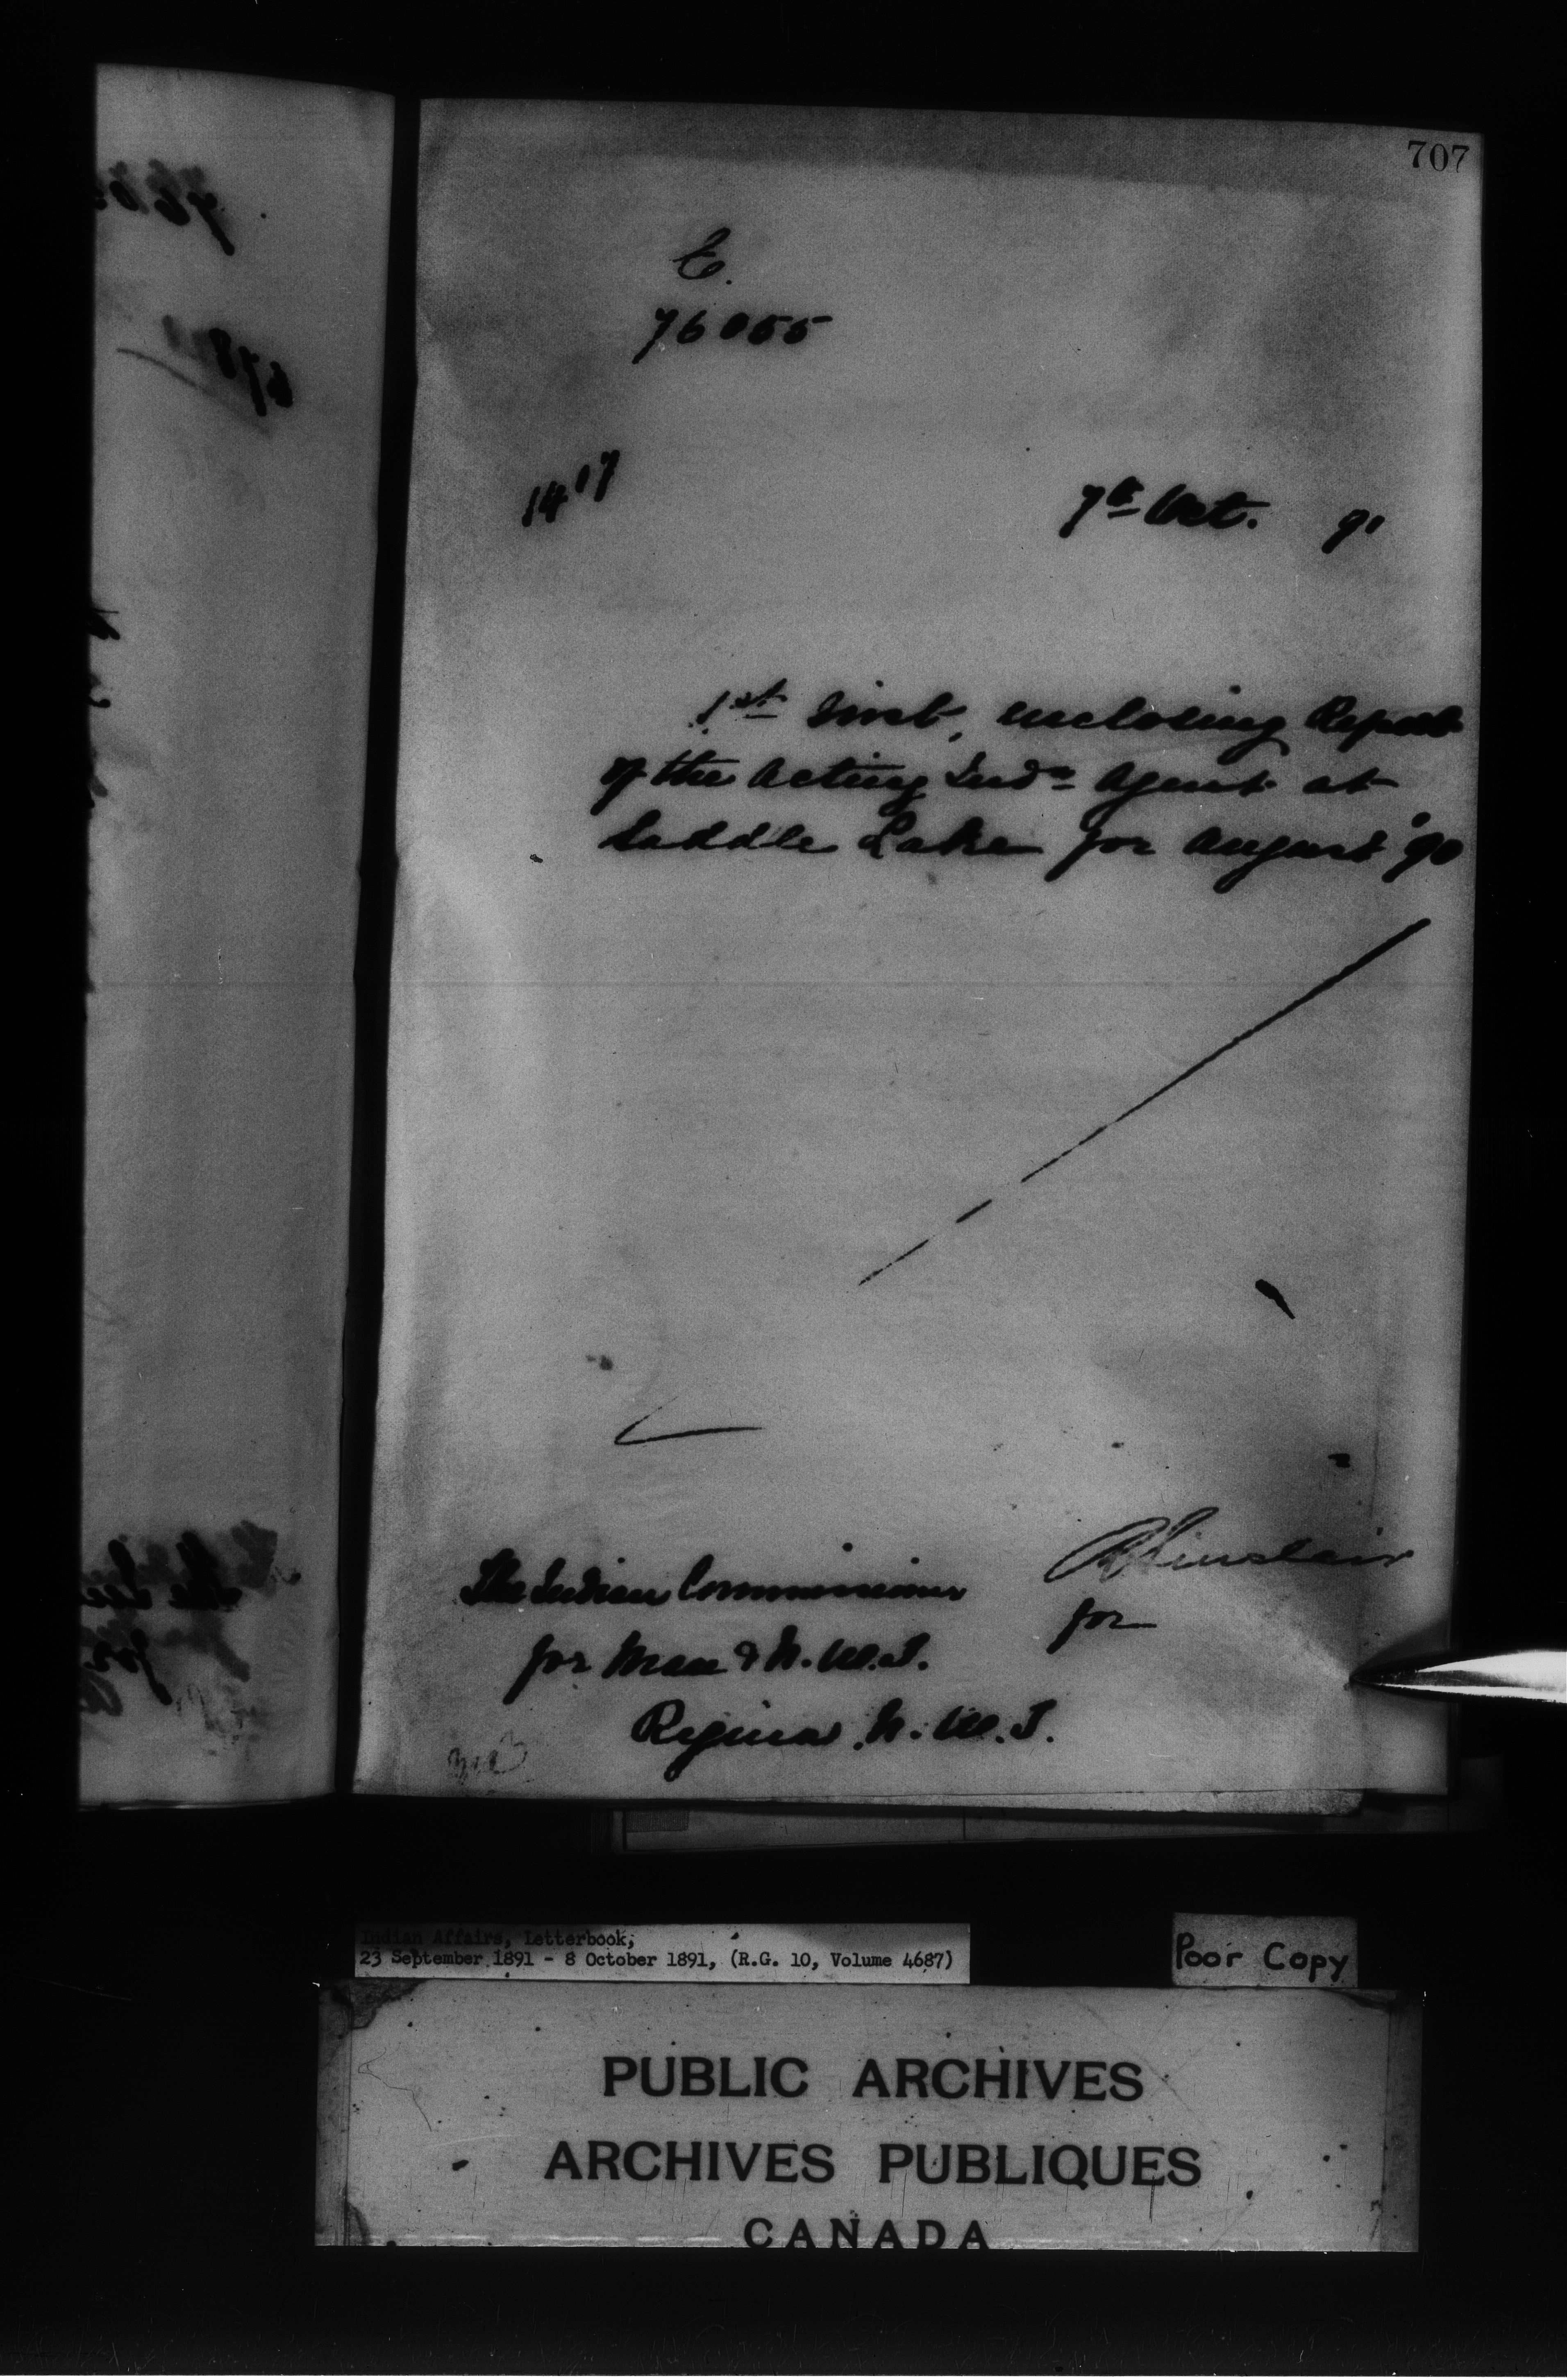 707
E.
76055
14 17
7th Oct. 91
1st inst, enclosing Report
of the Acting Indn Agent at
Saddle Lake for August '90
The Indian Commissioner
R Sinclair
for
for Man & N.W.T.
Regina N.W.T.
Indian Affairs, Letterbook,
23 September 1891 - 8 October 1891, (R.G. 10, Volume 4687)
Poor Copy
PUBLIC ARCHIVES
ARCHIVES PUBLIQUES
CANADA